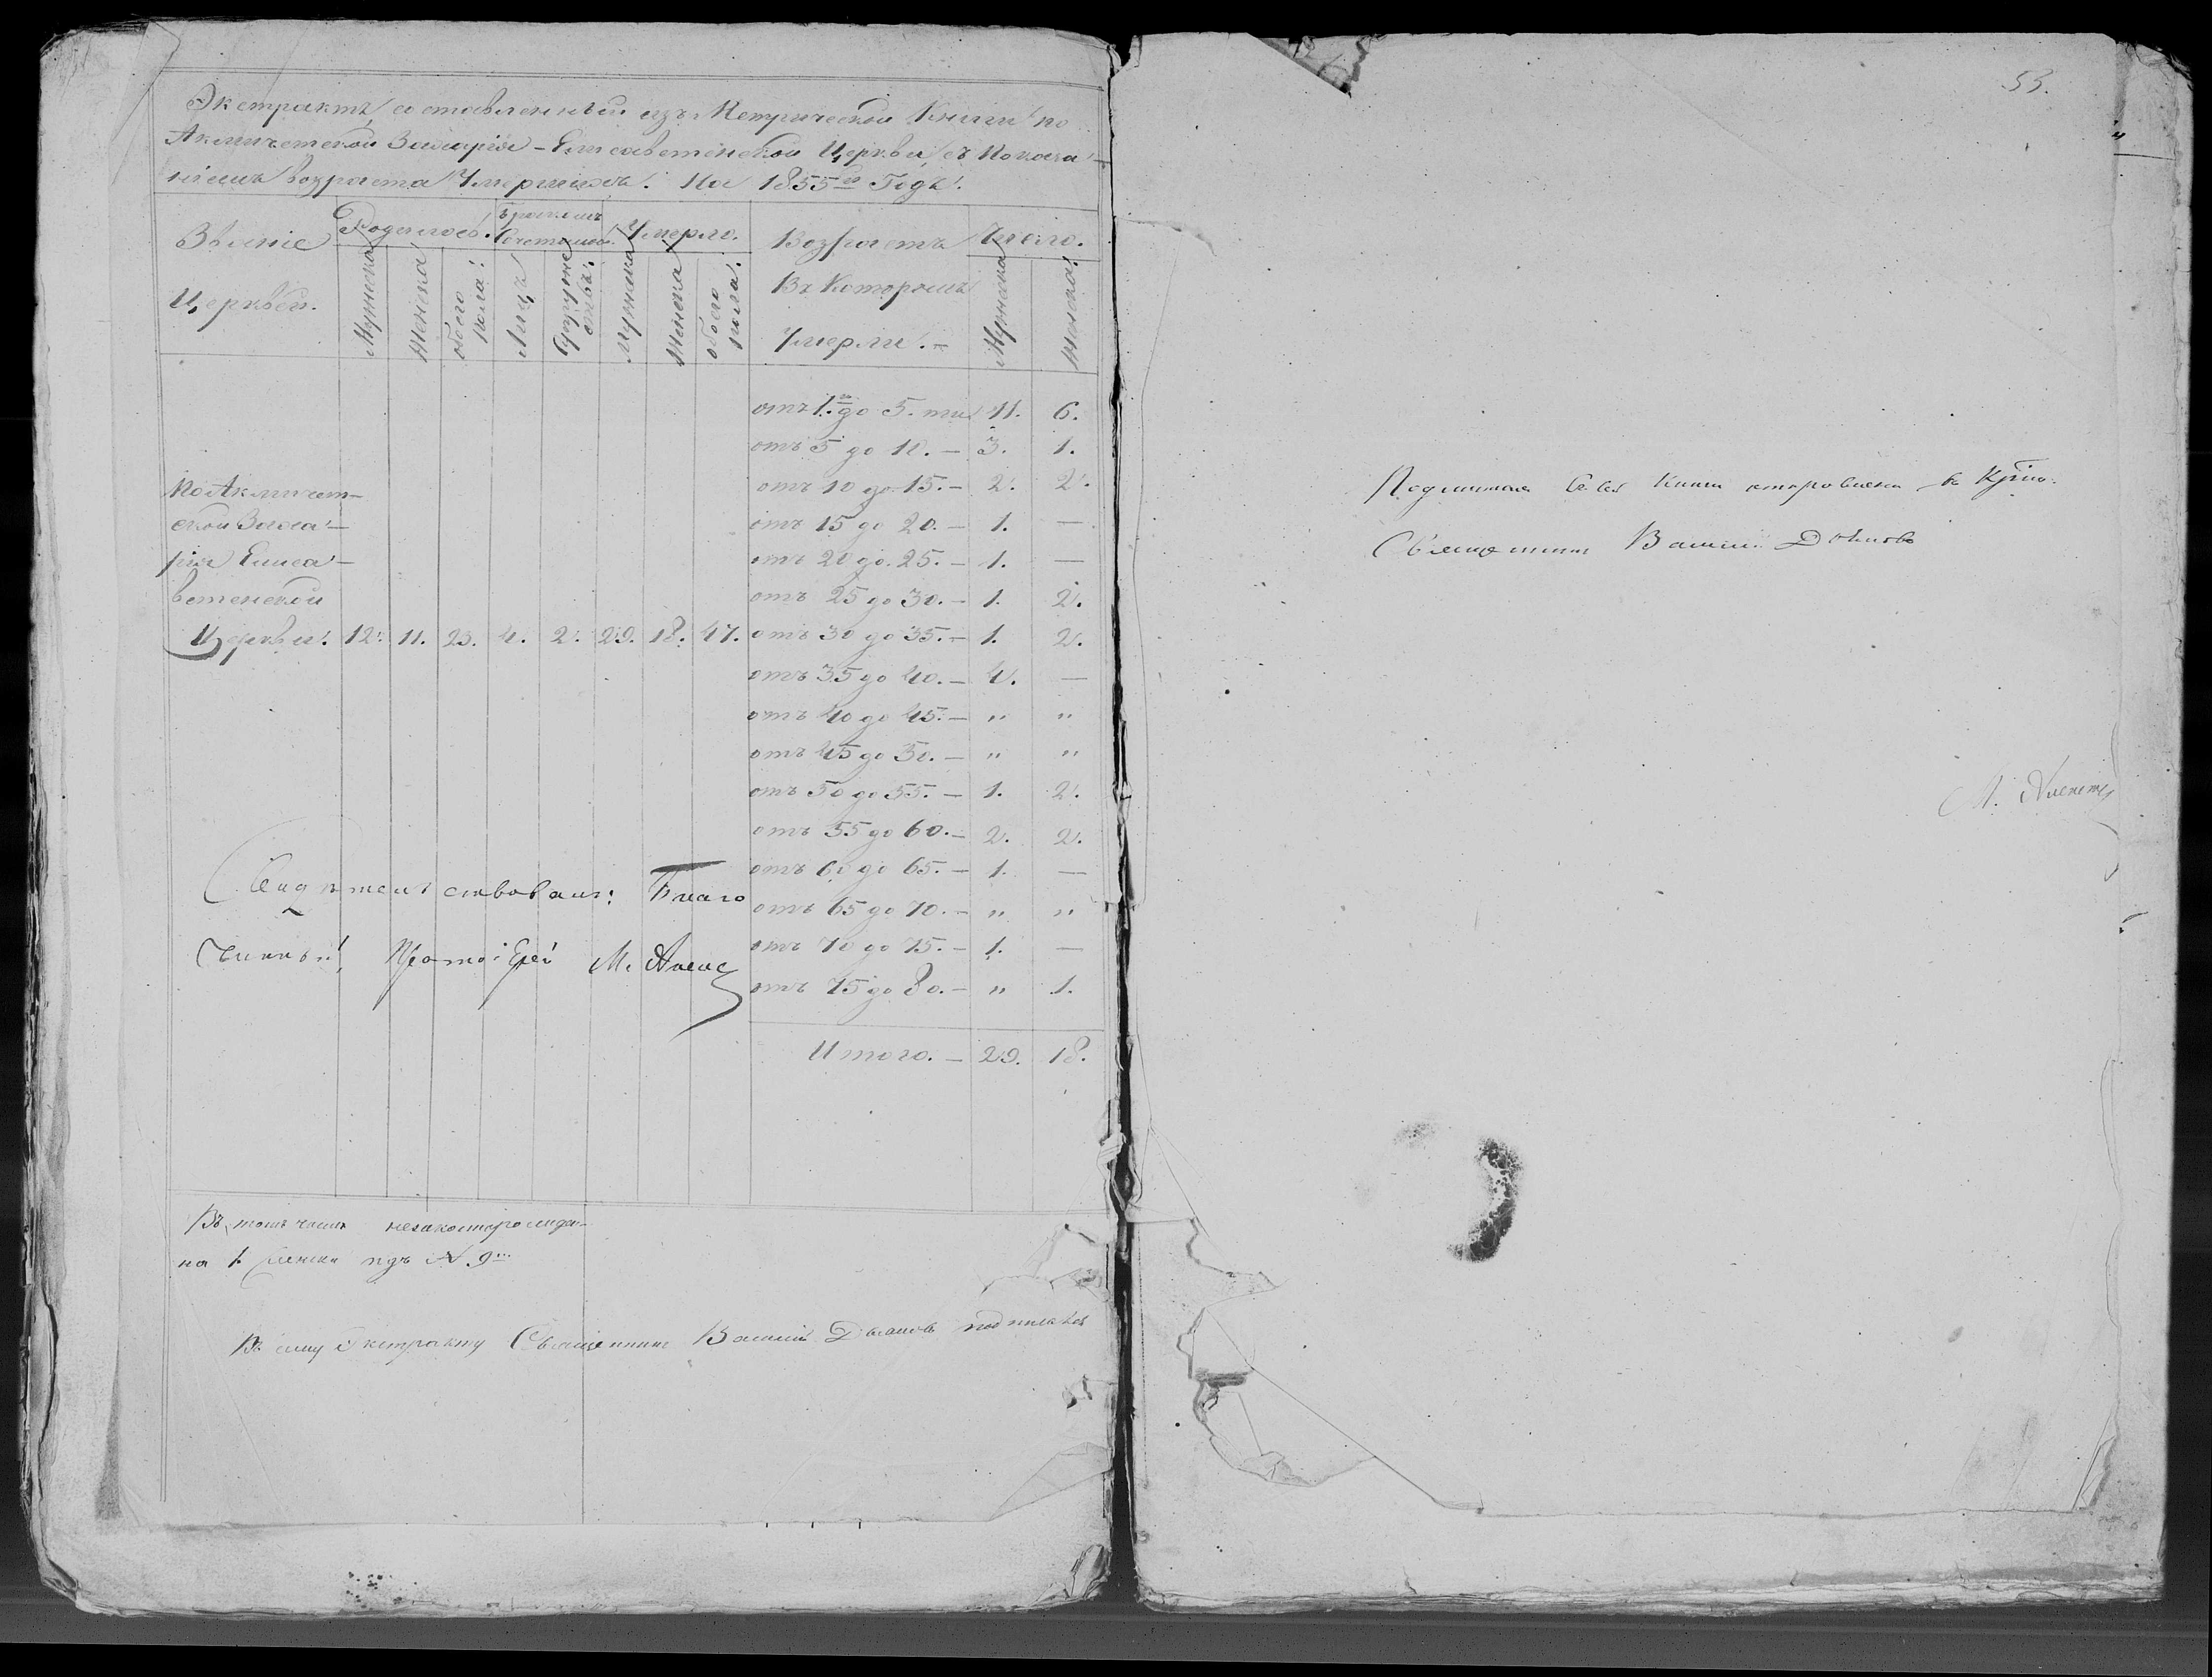 Экстрактъ, составленный изъ Метрической Книги по
Акмичетской Захарія-Елисаветенской Церкви, съ показа-
ніемъ возраста Умершихъ. На 1855й Годъ.
Званіе
Церквей.
Родилось.
Мужеска
Женска
обоего пола.
Бракомъ Сочетано.
Лицъ
Супруже ства.
Умерло.
мужеска
женска
обоего пола.
Возрастъ
Въ Которомъ
Умерли. –
Число.
Мужеска
женска.
отъ 1. до 5. ти 11. 6.
отъ 5 до 10. – 3. 1.
отъ 10 до 15. – 2. 2.
отъ 15 до 20. – 1. —
отъ 20 до 25. – 1. —
отъ 25 до 30. – 1. 2.
По Акмичет-
ской Заха-
рія Елиса-
ветенской
Церкви. 12. 11. 23. 4. 2. 29. 18. 47. отъ 30 до 35. – 1. 2.
отъ 35 до 40. – 4. —
отъ 40 до 45. – " "
отъ 45 до 50. – " "
отъ 50 до 55. – 1. 2.
отъ 55 до 60. – 2. 2.
отъ 60 до 65. – 1. —
отъ 65 до 70. – " "
отъ 70 до 75. – 1. —
отъ 75 до 80. – " 1.
Итого. – 29. 18.
Свидетельствовалъ: Благо
чинный Протоіерей М.
Въ томъ числе
на 1 подъ N. 9
Къ сему Экстракту Священникъ Василій подписался
53.
Подлинная Книга
Священникъ Василій
М.